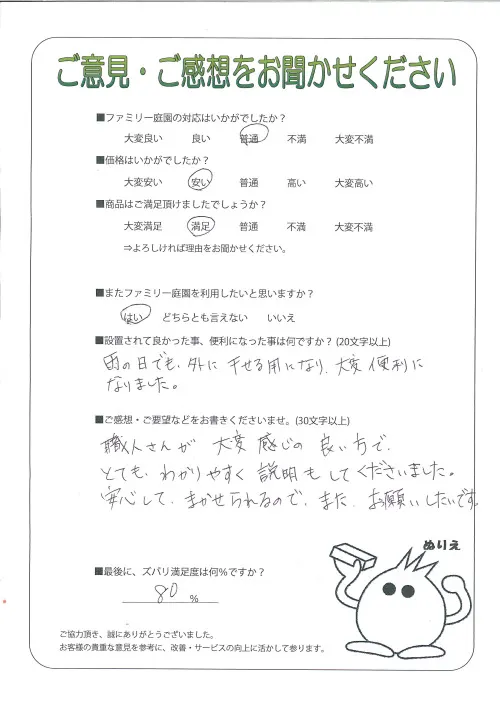 ご意見・ご感想をお聞かせください
■ファミリー庭園の対応はいかがでしたか？
大変良い 良い 普通 不満 大変不満
■価格はいかがでしたか？
大変安い 安い 普通 高い 大変高い
■商品はご満足頂けましたでしょうか？
大変満足 満足 普通 不満 大変不満
⇒よろしければ理由をお聞かせください。
■またファミリー庭園を利用したいと思いますか？
はい どちらとも言えない いいえ
■設置されて良かった事、便利になった事は何ですか？(20文字以上)
雨の日でも、外に干せる用になり、大変便利に
なりました。
■ご感想・ご要望などをお書きくださいませ。(30文字以上)
職人さんが大変感じの良い方で、
とても、わかりやすく説明もしてくださいました。
安心して、まかせられるので、また、お願いしたいです。
ぬりえ
■最後に、ズバリ満足度は何％ですか？
80 ％
ご協力頂き、誠にありがとうございました。
お客様の貴重な意見を参考に、改善・サービスの向上に活かして参ります。